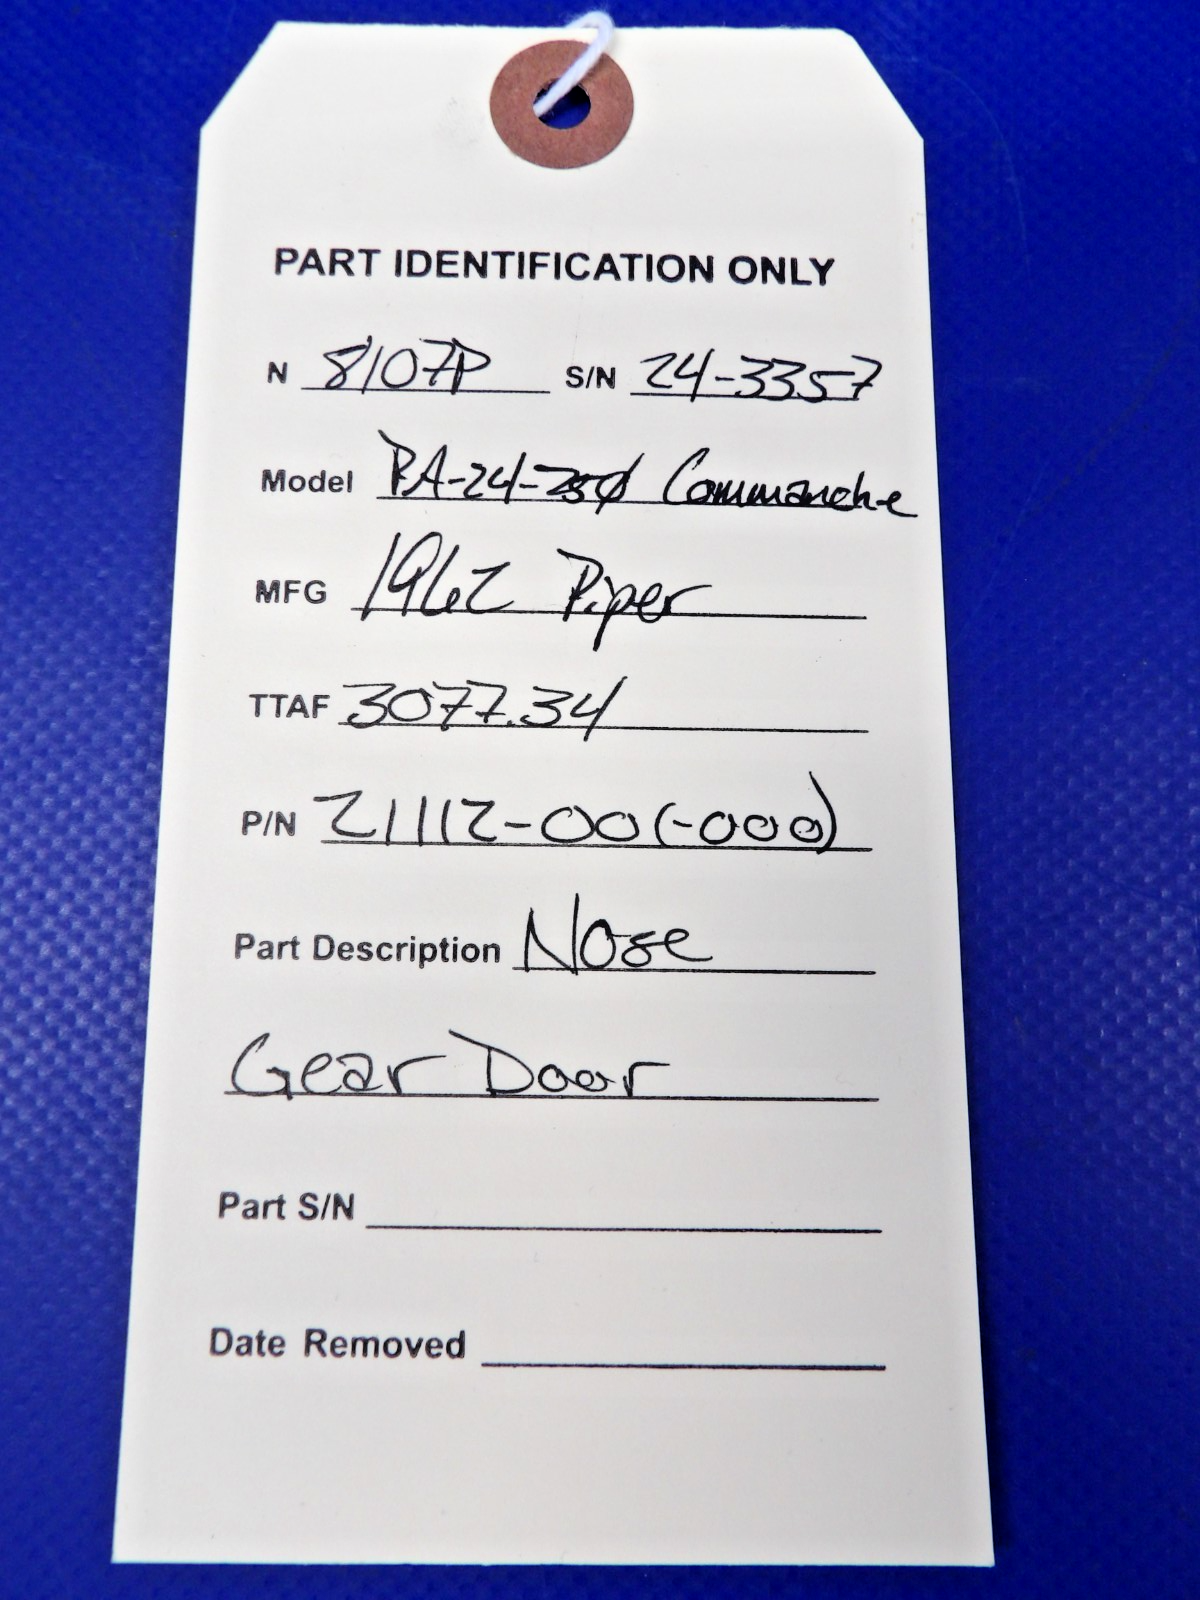 PART IDENTIFICATION ONLY
N 8107P S/N 24-3357
Model PA-24-250 Commanche
MFG 1962 Piper
TTAF 3077.34
P/N 21112-00 (-000)
Part Description Nose
Gear Door
Part S/N
Date Removed